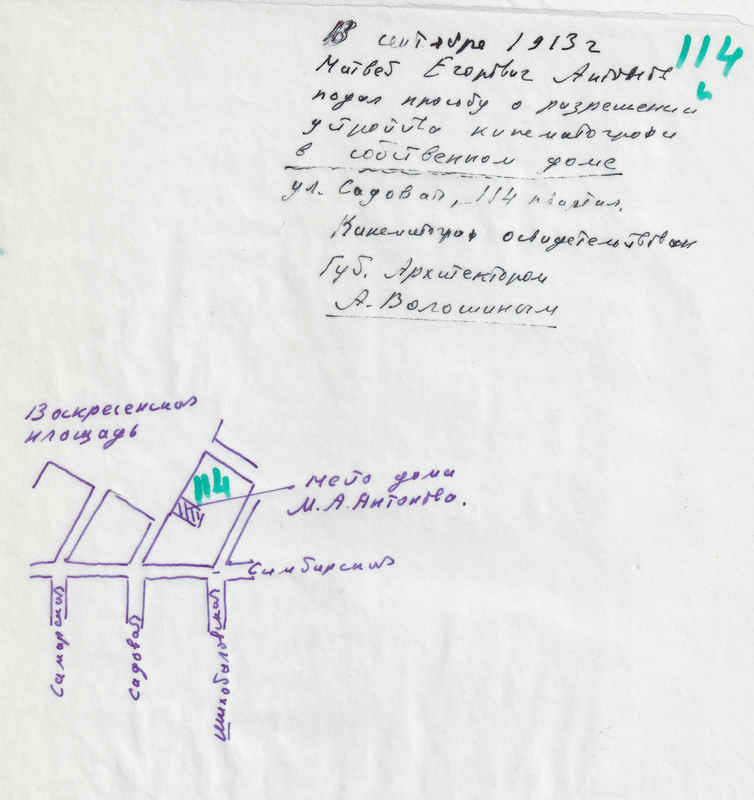 В сентябре 1913 г
114
Матвей Егорович Антонов
подал просьбу о разрешении
устройства кинематографа
в собственном доме
ул. Садовая, 114 квартал.
Кинематограф освидетельствован
Губ. Архитектором
А. Волошиным
Воскресенская
площадь
114
место дома
М.А. Антонова.
Симбирская
Самарская
Садовая
Шихобаловская